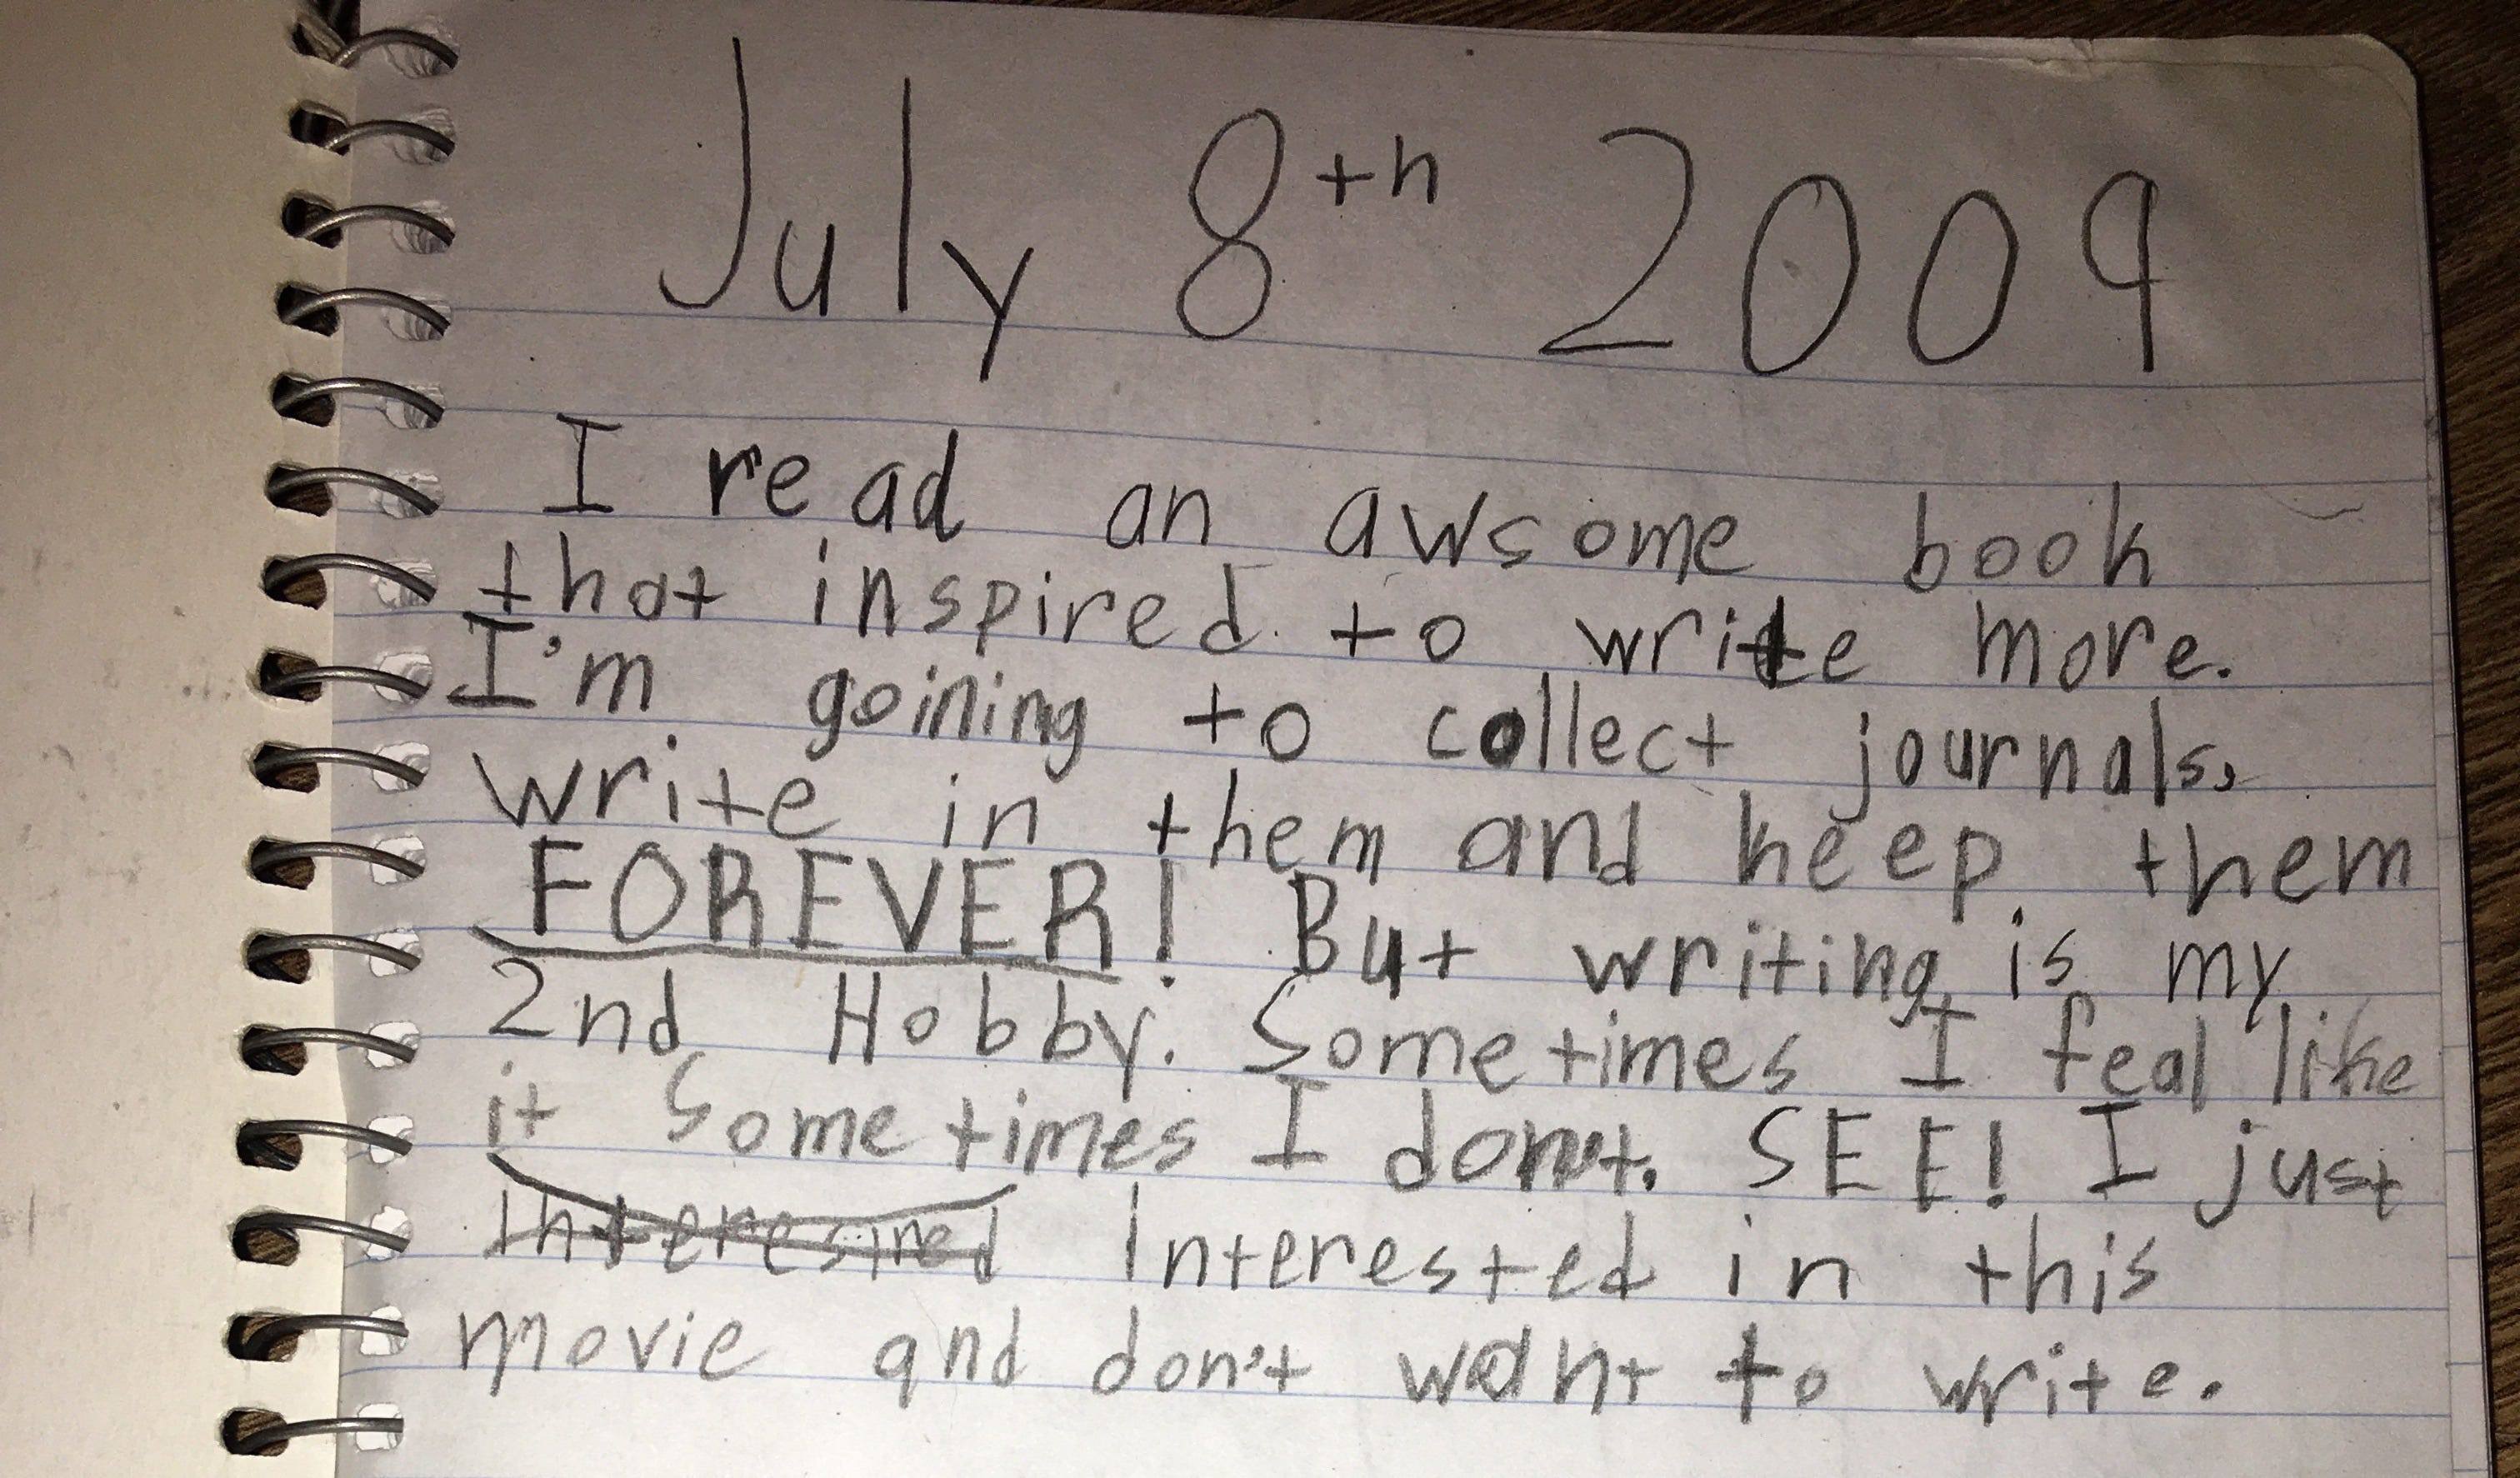 July 8th 2009
I read an awsome book
that inspired to write more.
I'm goining to collect journals,
write in them and keep them
FOREVER! But writing is my
2nd Hobby. Sometimes I feal like
it Sometimes I don't. SEE! I just
Interested in this
movie and don't want to write.